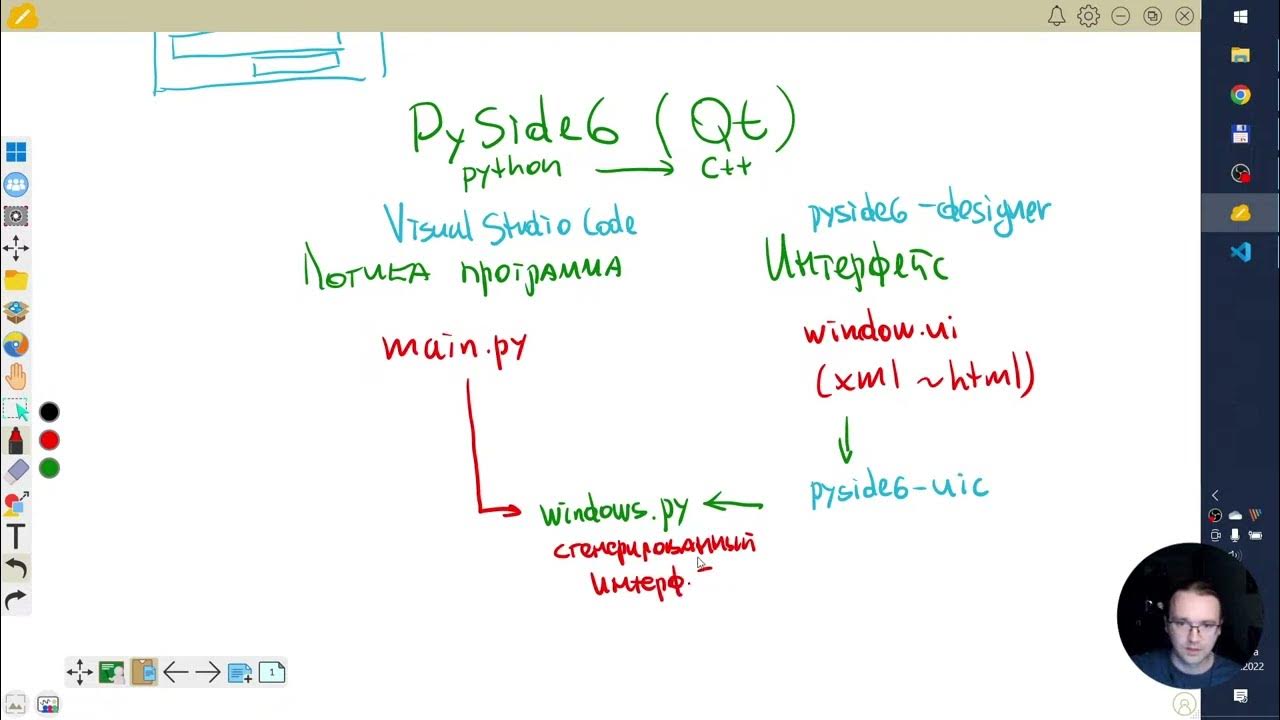 PySide6 (Qt)
python → C++
Visual Studio Code
pyside6-designer
Логика программа
Интерфейс
main.py
window.ui
(xml ~html)
pyside6-uic
windows.py ←
сгенерированный
интерф.
T
1
2022